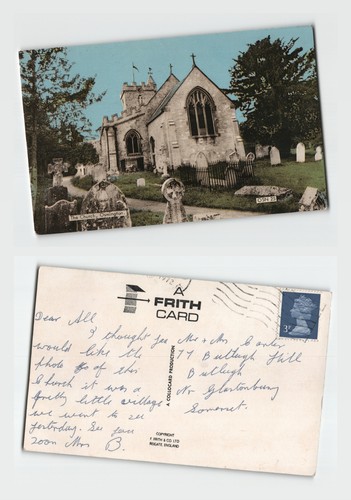 The Church,
OSM 22
A
FRITH
CARD
A COLLOCARD PRODUCTION
COPYRIGHT
F. FRITH & CO. LTD
REIGATE, ENGLAND
3P
Dear All
I thought you
would like the
photo of this
Church it was a
pretty little village
we went to see
yesterday. See you
soon Mrs B.
Mr + Mrs Carter
77 Butleigh Hill
Butleigh
Nr Glastonbury
Somerset.